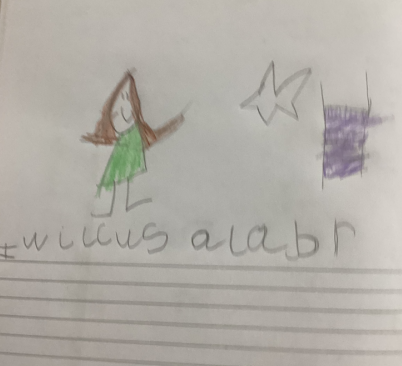 I wiccus alabr